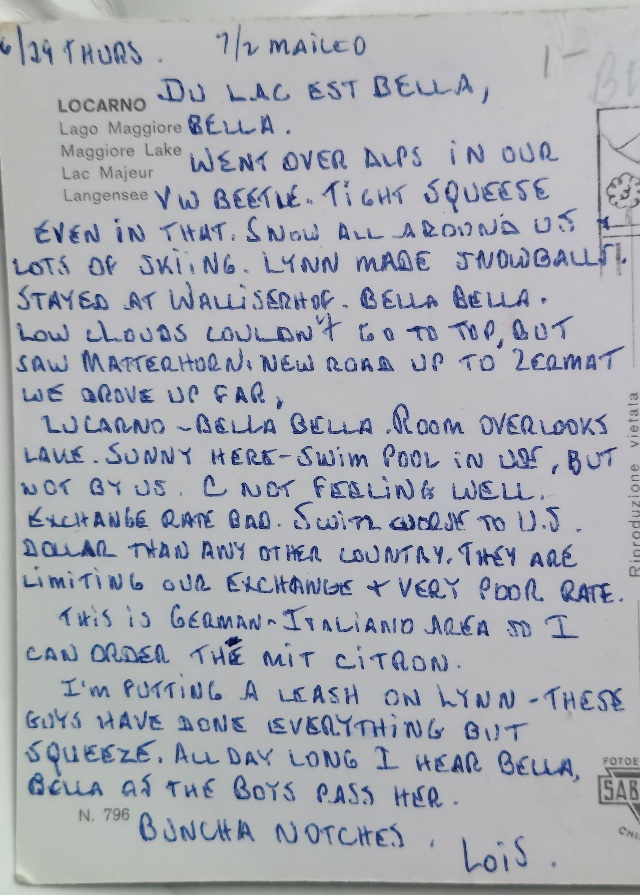 6/29 THURS. 7/2 MAILED
1-
DU LAC EST BELLA,
LOCARNO
Lago Maggiore
Maggiore Lake
Lac Majeur
Langensee
BELLA.
WENT OVER ALPS IN OUR
VW BEETLE. TIGHT SQUEESE
EVEN IN THAT. SNOW ALL AROUND US &
LOTS OF SKIING. LYNN MADE SNOWBALLS.
STAYED AT WALLISERHOF. BELLA BELLA.
LOW CLOUDS COULDN'T GO TO TOP, BUT
SAW MATTERHORN. NEW ROAD UP TO ZERMAT
WE DROVE UP FAR,
LUCARNO - BELLA BELLA. ROOM OVERLOOKS
LAKE. SUNNY HERE - SWIM POOL IN USE, BUT
NOT BY US. C NOT FEELING WELL.
EXCHANGE RATE BAD. SWITZ WORSE TO U.S.
DOLLAR THAN ANY OTHER COUNTRY. THEY ARE
LIMITING OUR EXCHANGE & VERY POOR RATE.
THIS IS GERMAN-ITALIANO AREA SO I
CAN ORDER THE MIT CITRON.
I'M PUTTING A LEASH ON LYNN - THESE
GUYS HAVE DONE EVERYTHING BUT
SQUEEZE. ALL DAY LONG I HEAR BELLA,
BELLA AS THE BOYS PASS HER.
N. 796
BUNCHA NOTCHES.
LOIS.
Riproduzione vietata
FOTOE
SAB